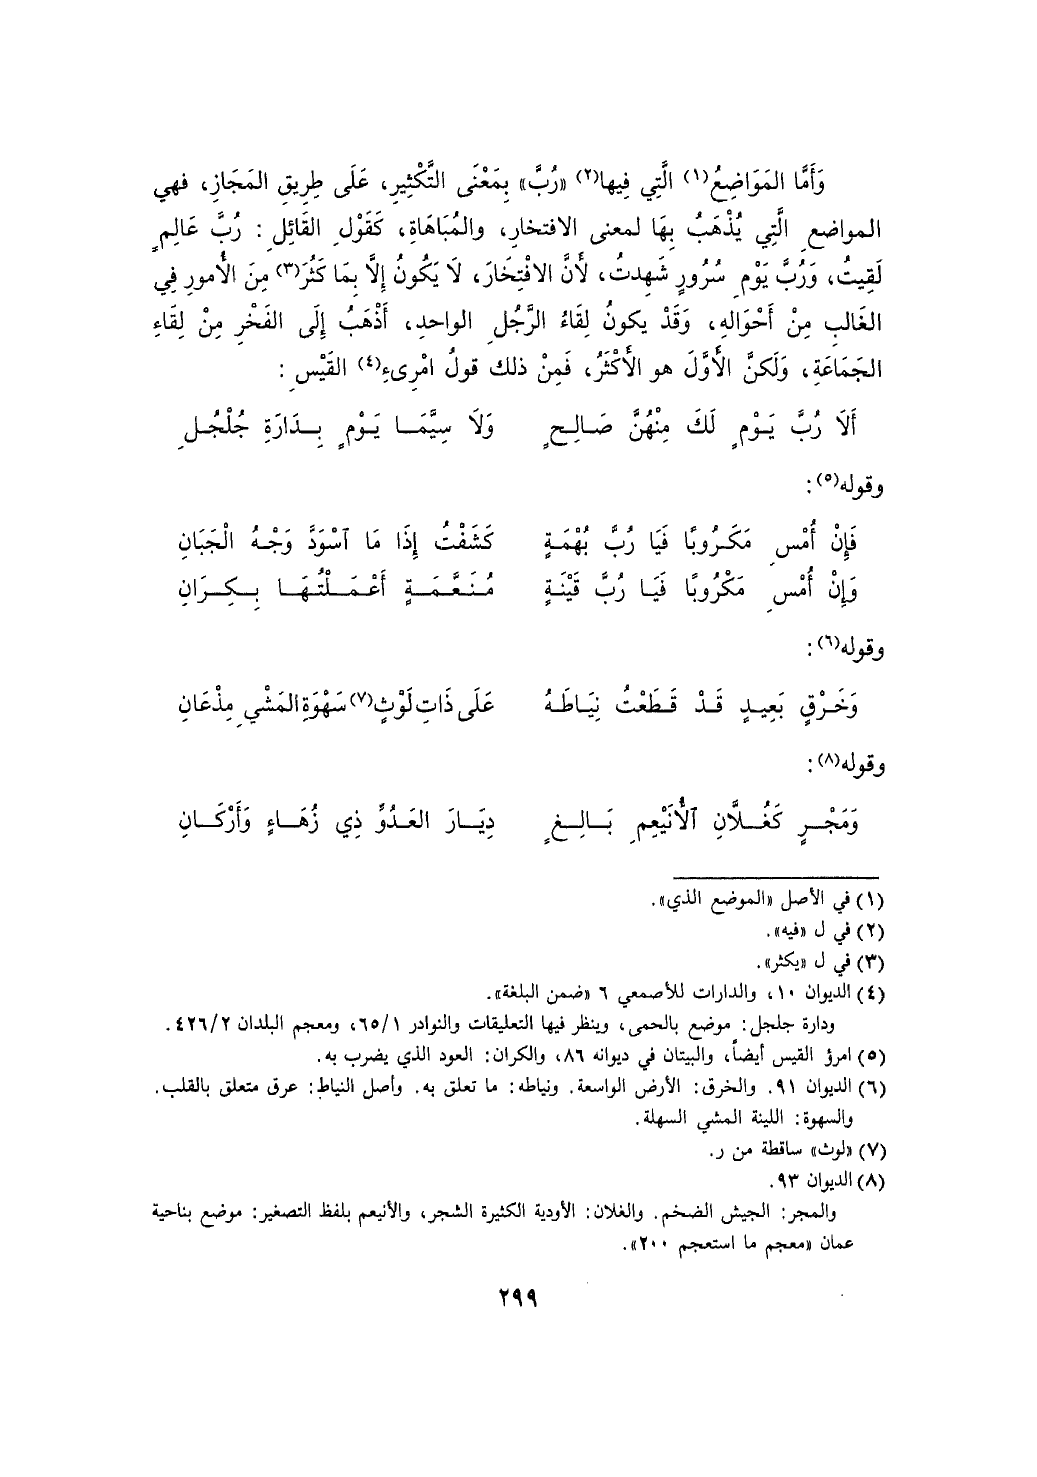 وَأَمَّا المَوَاضِعُ(١) الَّتِي فِيها(٢) «رُبَّ» بِمَعْنَى التَّكْثِيرِ، عَلَى طِرِيقِ المَجَازِ، فهي
المواضع الَّتِي يُذْهَبُ بِهَا لمعنى الافتخار، والمُبَاهَاةِ، كَقَوْلِ القَائِلِ : رُبَّ عَالِمٍ
لَقِيتُ، وَرُبَّ يَوْمِ سُرُورٍ شَهِدتُ، لأَنَّ الافْتِخَارَ، لَا يَكُونُ إِلَّا بِمَا كَثُرَ(٣) مِنَ الأُمورِ فِي
الغَالبِ مِنْ أَحْوَالهِ، وَقَدْ يكونُ لِقَاءُ الرَّجُلِ الواحدِ، أَذْهَبُ إِلَى الفَخْرِ مِنْ لِقَاءِ
الجَمَاعَةِ، وَلَكنَّ الأَوَّلَ هو الأَكْثَرُ، فَمِنْ ذلك قولُ امْرِىءِ(٤) القَيْسِ :
أَلَا رُبَّ يَوْمٍ لَكَ مِنْهُنَّ صَالِحٍ وَلَا سِيَّمَا يَوْمٍ بِدَارَةِ جُلْجُلِ
وقوله(٥):
فَإِنْ أُمْسِ مَكَرُوبًا فَيَا رُبَّ بُهْمَةٍ كَشَفْتُ إِذَا مَا ٱسْوَدَّ وَجْهُ الْجَبَانِ
وَإِنْ أُمْسِ مَكْرُوبًا فَيَا رُبَّ قَيْنَةٍ مُنَعَّمَةٍ أَعْمَلْتُهَا بِكِرَانِ
وقوله(٦):
وَخَرْقٍ بَعِيدٍ قَدْ قَطَعْتُ نِيَاطَهُ عَلَى ذَاتِ لَوْثٍ(٧) سَهْوَةِ المَشْيِ مِذْعَانِ
وقوله(٨):
وَمَجْرٍ كَغُلَّانِ ٱلأُنَيْعِمِ بَالِغٍ دِيَارَ العَدُوِّ ذِي زُهَاءٍ وَأَرْكَانِ
(١) في الأصل «الموضع الذي».
(٢) في ل «فيه».
(٣) في ل «يكثر».
(٤) الديوان ١٠، والدارات للأصمعي ٦ «ضمن البلغة».
ودارة جلجل: موضع بالحمى، وينظر فيها التعليقات والنوادر ٦٥/١، ومعجم البلدان ٤٢٦/٢.
(٥) امرؤ القيس أيضاً، والبيتان في ديوانه ٨٦، والكران: العود الذي يضرب به.
(٦) الديوان ٩١. والخرق: الأرض الواسعة. ونياطه: ما تعلق به. وأصل النياط: عرق متعلق بالقلب.
والسهوة: اللينة المشي السهلة.
(٧) «لوث» ساقطة من ر.
(٨) الديوان ٩٣.
والمجر: الجيش الضخم. والغلان: الأودية الكثيرة الشجر، والأنيعم بلفظ التصغير: موضع بناحية
عمان «معجم ما استعجم ٢٠٠».
٢٩٩